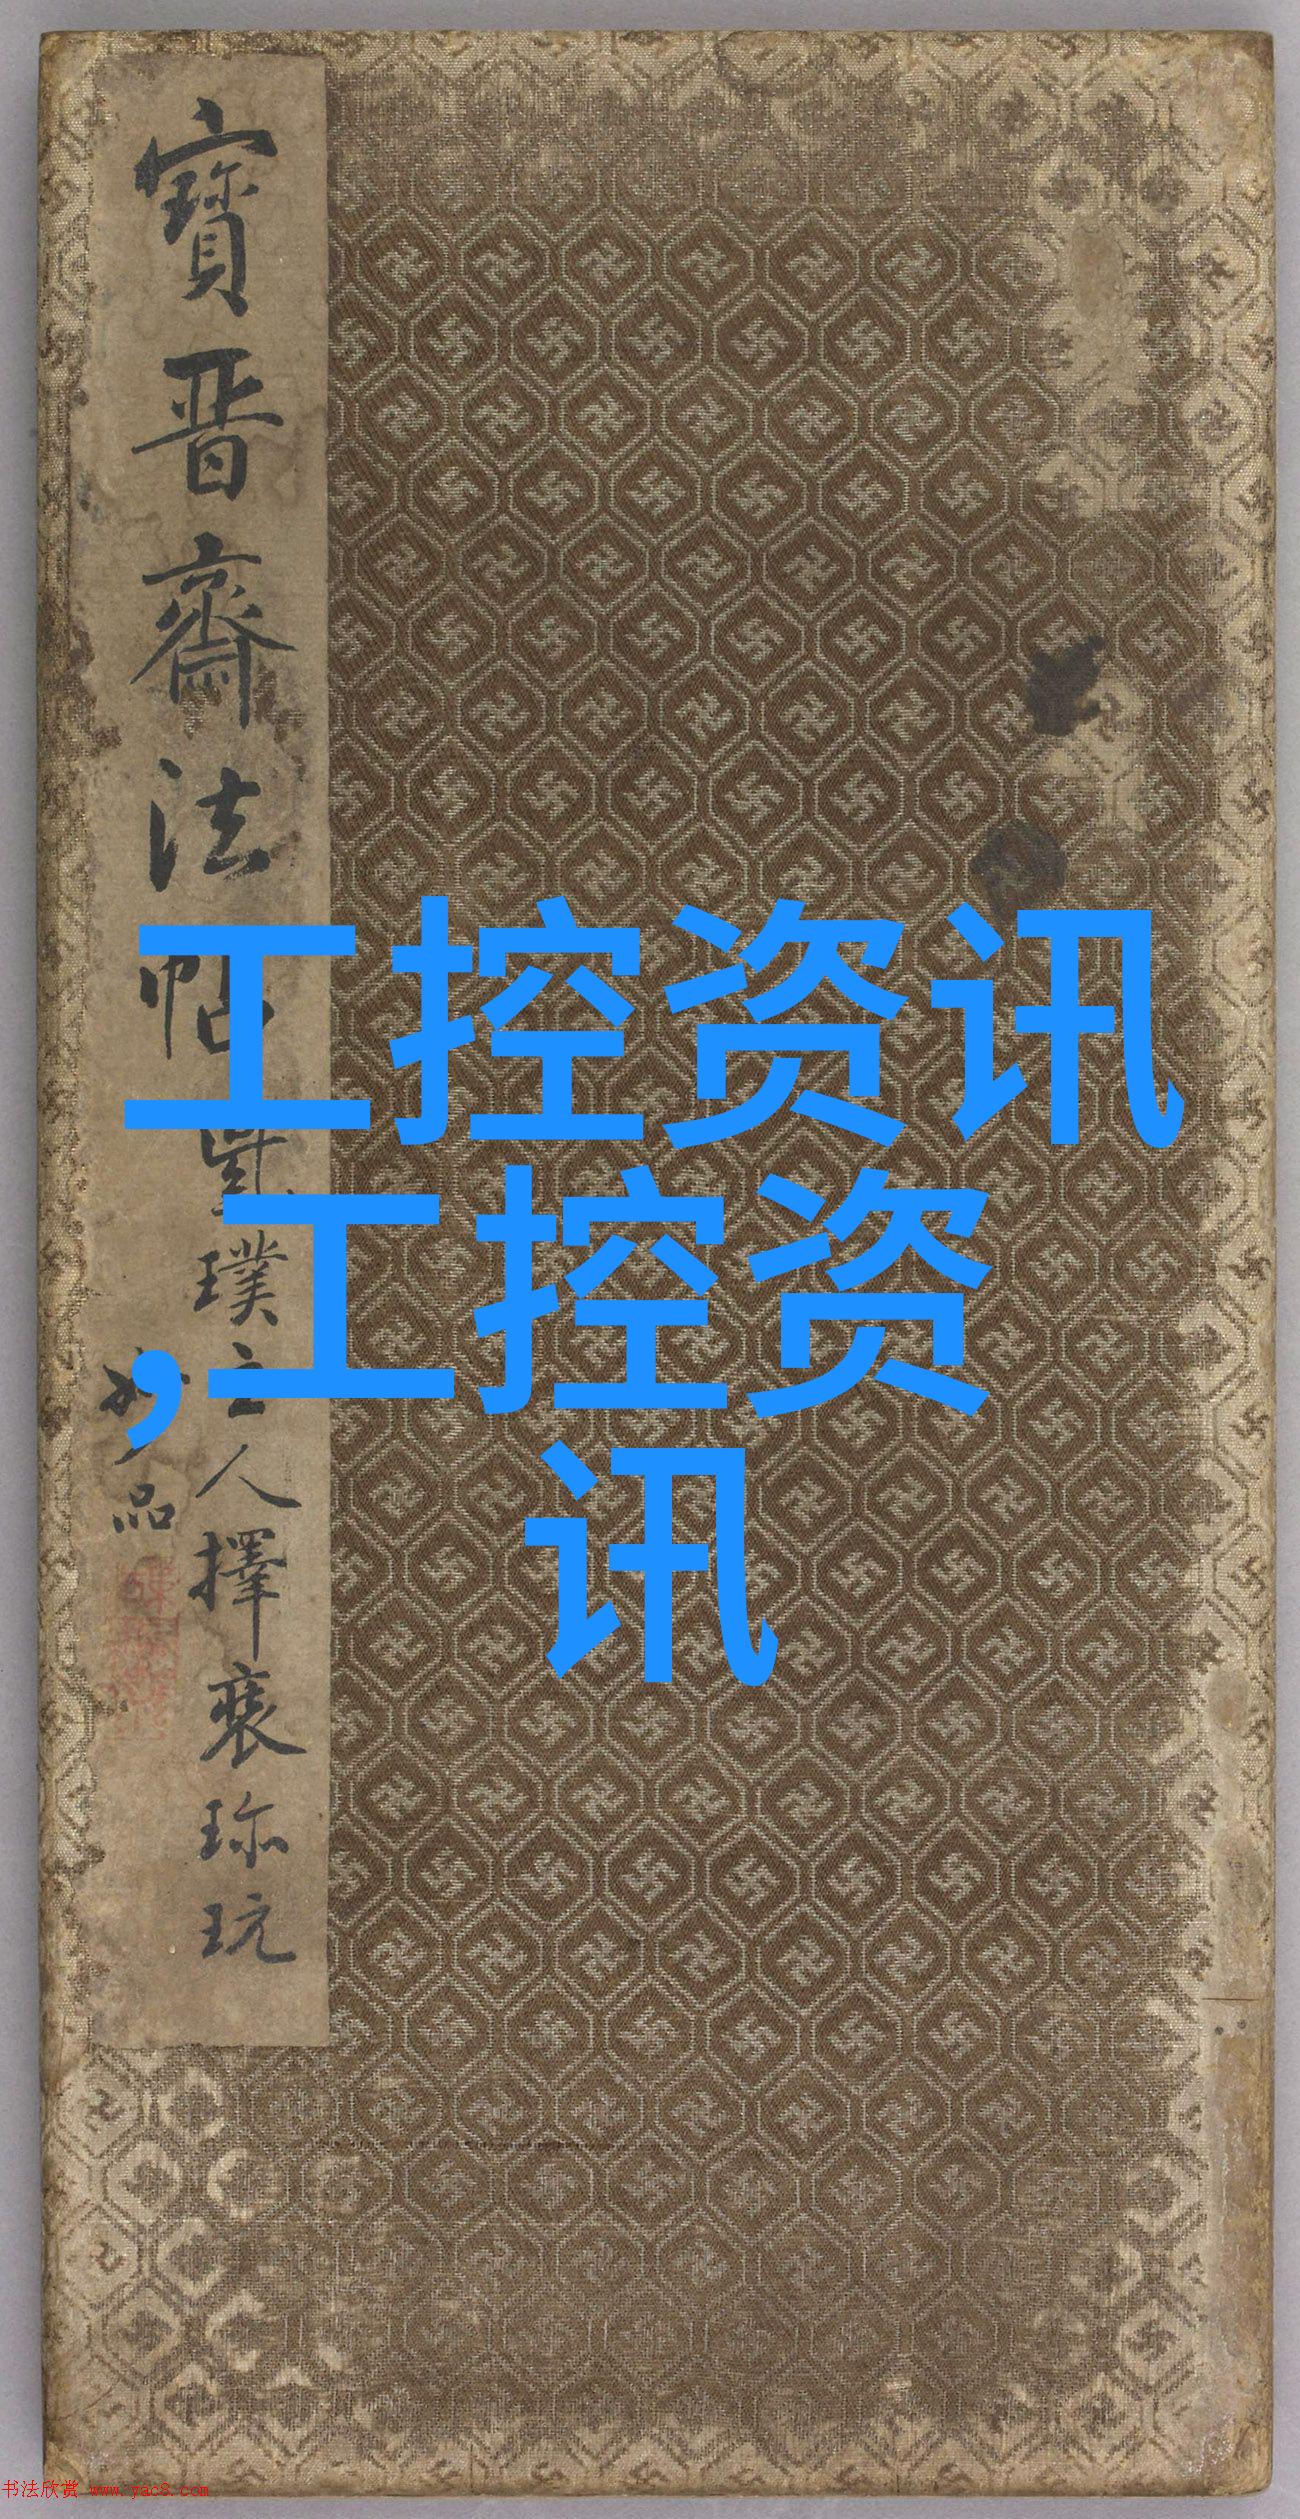 寳晋齋法帖
璞主人擇裘珎玩
妙品
工控资讯
,工控资
讯
书法欣赏 www.yac8.com